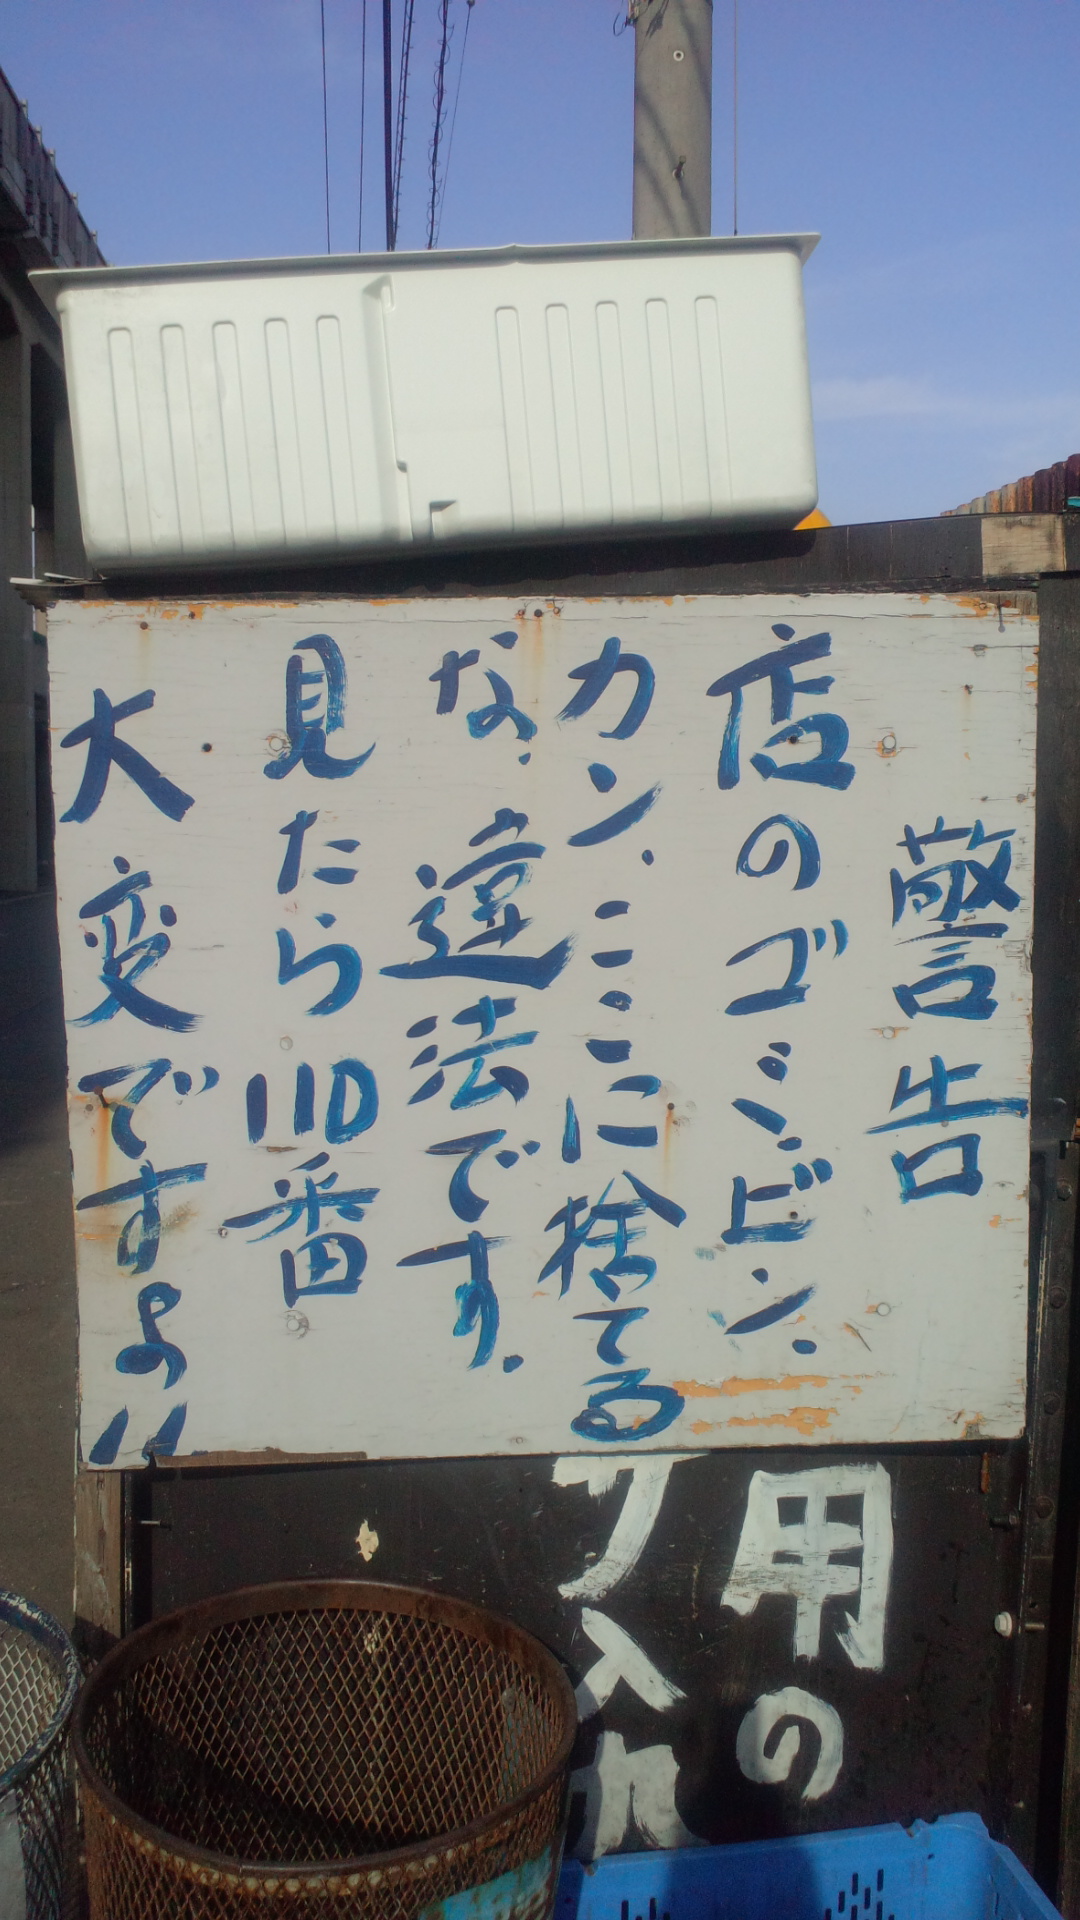 警告
店のゴミ、ビン、
カン、ここに捨てる
な、違法です、
見たら110番
大変ですよ!!
用の
入れ